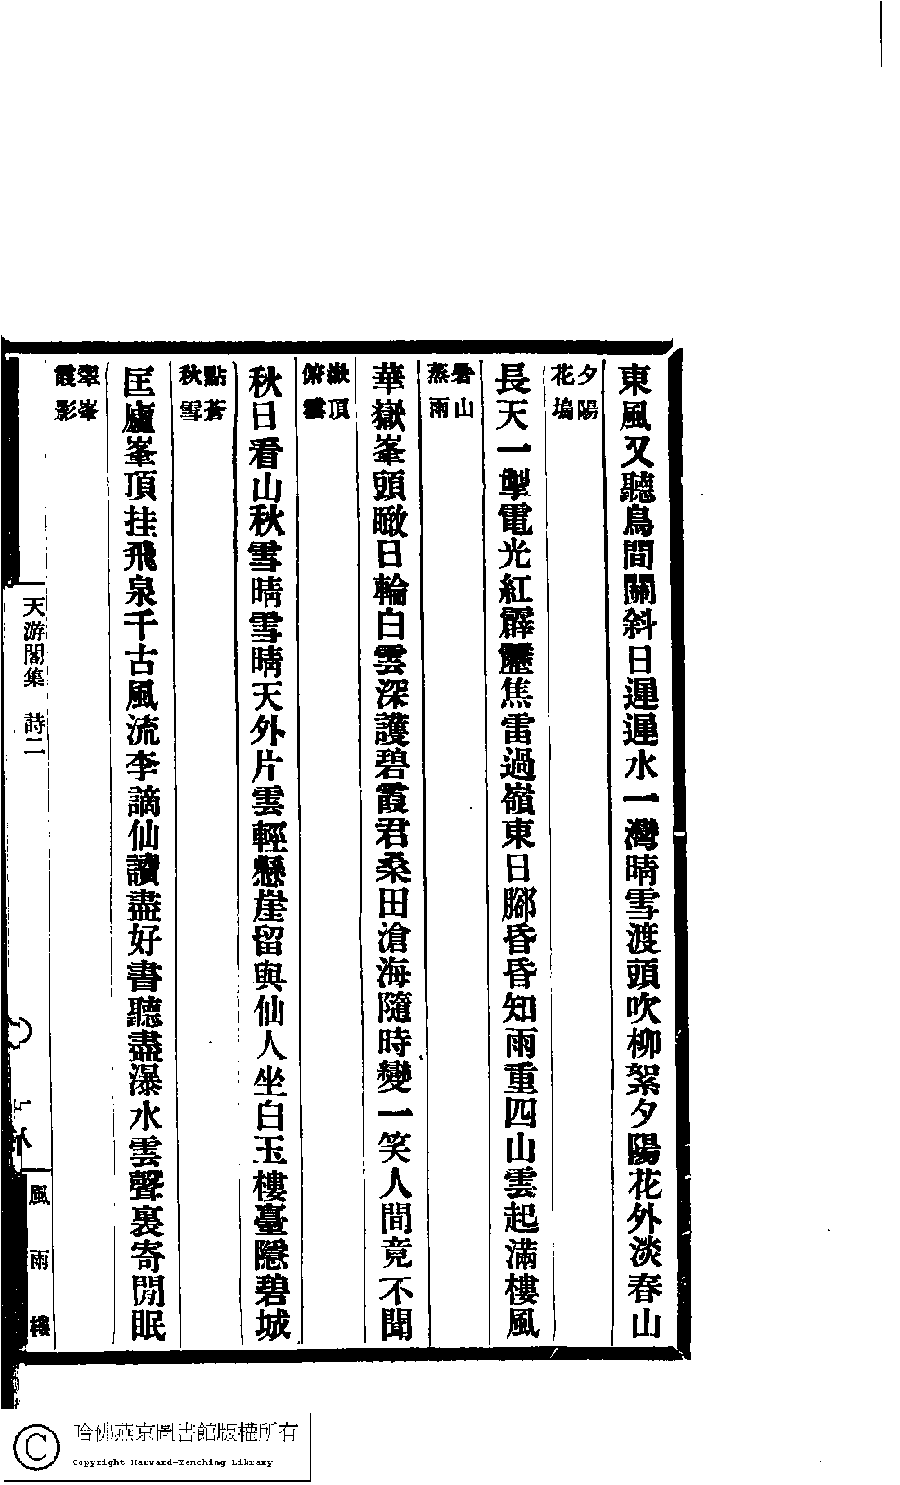 東風又聽鳥間關斜日遲遲水一灣晴雪渡頭吹柳絮夕陽花外淡春山
夕陽
花塢
長天一掣電光紅霹靂焦雷過嶺東日腳昏昏知雨重四山雲起滿樓風
暑山
蒸雨
華嶽峯頭瞰日輪白雲深護碧霞君桑田滄海隨時變一笑人間竟不聞
嶽頂
俯雲
秋日看山秋雪晴雪晴天外片雲輕懸崖留與仙人坐白玉樓臺隱碧城
點蒼
秋雪
匡廬峯頂挂飛泉千古風流李謫仙讀盡好書聽盡瀑水雲聲裏寄閒眠
翠峯
霞影
天游閣集 詩二
風雨樓
哈佛燕京圖書館版權所有
Copyright Harvard-Yenching Library